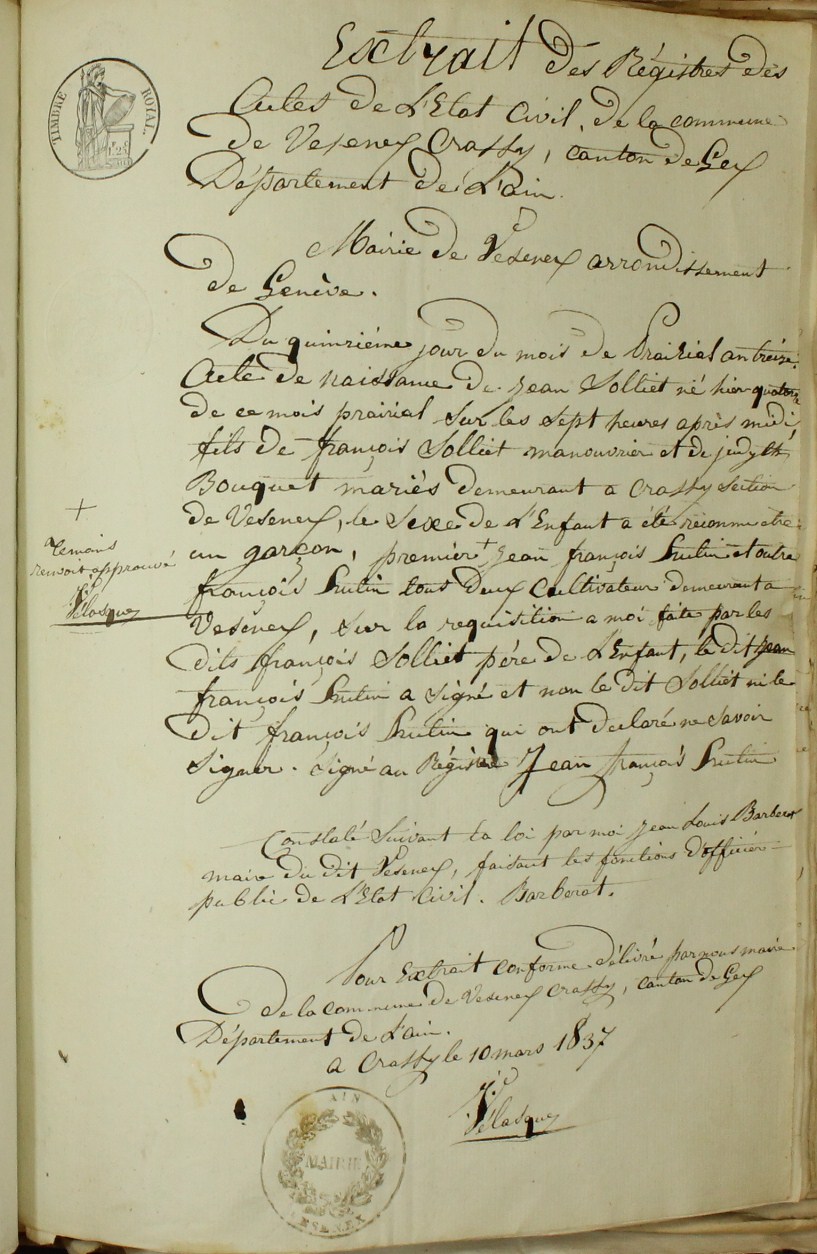 TIMBRE ROYAL.
Extrait des Régistres des
Actes de L'Etat Civil, de la commune
de Vesenex Crassy, canton de Gex
Département de L'ain.
Mairie de Vesenex arrondissement
de Genève.
Du quinzième jour du mois de Prairial an treize
Acte de naissance de Jean Solliet né hier quatorze
de ce mois prairial sur les sept heures après midi,
fils de françois Solliet manouvrier et de judyth
Bouquet mariés demeurant a Crassy section
de Vesenex, le Sexe de L'Enfant a été reconnu etre
un garçon, premier + Jean françois et outre
françois tous deux Cultivateur demeurant a
Vesenex, sur la requisition a moi faite par les
dits françois Solliet pére de L'Enfant, le dit Jean
françois a signé et non le dit Solliet ni le
dit françois qui ont declaré ne savoir
signer. signé au Régistre Jean françois
+
temoins
renvoit approuvé
Vélasquez
Constaté suivant la loi par moi Jean Louis Barberat
maire du dit Vesenex, faisant les fonctions d'officier
public de L'Etat Civil. Barberat.
Pour Extrait conforme délivré par nous maire
de la commune de Vesenex Crassy, canton de Gex
Département de L'ain.
a Crassy le 10 mars 1837
Vélasquez
AIN
MAIRIE
VESENEX